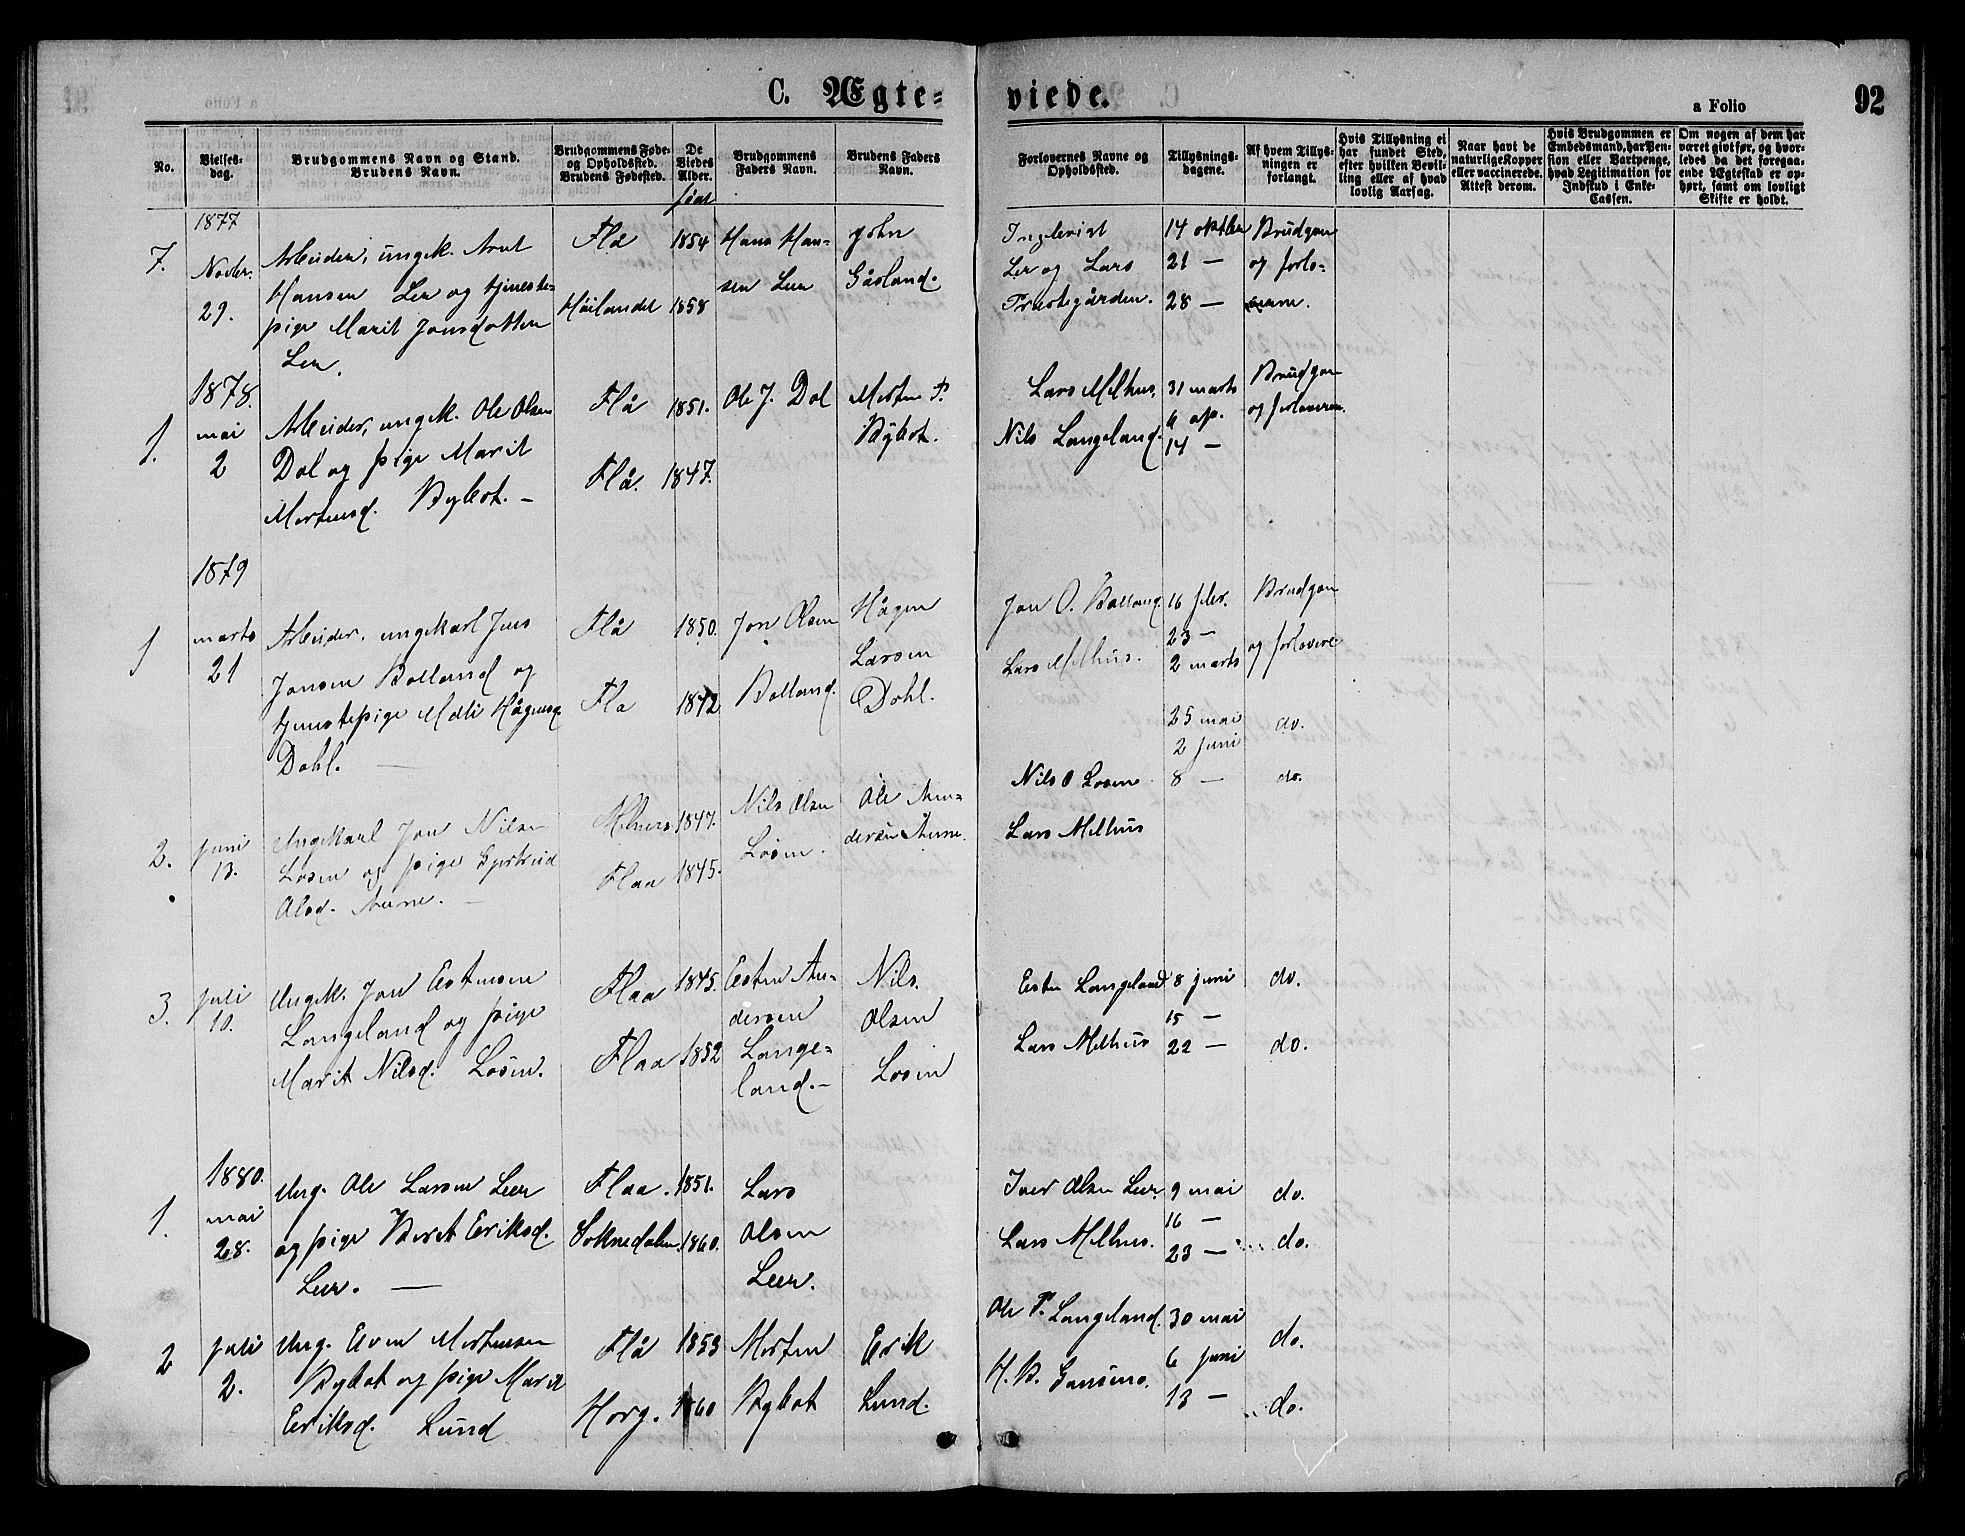 C. Ægte=
viede.
a Folio
92
No.
Vielses=
dag.
Brudgommens Navn og Stand.
Brudens Navn.
Brudgommens Føde=
og Opholdssted.
Brudens Fødested.
De
Viedes
Alder.
Brudgommens
Faders Navn.
Brudens Faders
Navn.
Forlovernes Navne og
Opholdssted.
Tillysnings=
dagene.
Af hvem Tillys=
ningen er
forlangt.
Hvis Tillysning ei
har fundet Sted,
efter hvilken Bevil=
ling eller af hvad
lovlig Aarsag.
Naar havt de
naturlige Kopper
eller vaccinerede.
Attest derom.
Hvis Brudgommen er
Embedsmand, har Pen=
sion eller Vartpenge,
hvad Legitimation for
Indskud i Enke=
Cassen.
Om nogen af dem har
været givt før, og hvor=
ledes da det foregaa=
ende Ægteskab er op=
hørt, samt om lovligt
Skifte er holdt.
1877
7.
Novbr.
29.
Arbeider, ungk. Arnt
Hansen Ler og tjeneste=
pige Marit Jonsdatter
Ler.
Flå
Høilandet
1854
1858
Hans Han=
sen Leer
John
Gåsland.
Ingebrigt
Ler og Lars
Præstegården.
14 oktber
21 —
28 —
Brudgom
og forlo=
1878.
1.
mai
2
Arbeider, ungk. Ole Olsen
Dal og pige Marit
Mortensd. Bybot. –
Flå
Flå.
1851.
1847.
Ole J. Dal
Morten P.
Bybot.
Lars Melhus.
Nils Langeland.
31 marts
6 ap.
14 —
Brudgom
og forloveren
1879
1
marts
21
Arbeider, ungkarl Jens
Jonsen Bolland og
tjenestepige Mali Hågensd
Dahl. —
Flå
Fla
1850.
1842
Jon Olsen
Bolland.
Hågen
Larsen
Dahl.
Jon O. Bolland.
Lars Melhus.
16 febr.
23 —
2 marts
Brudgom
og forlovere
2.
juni
13.
Ungkarl Jon Nilsen
Losen og pige Gjertrud
Olsd. Aune. —
Melhus
Flaa
1847.
1845.
Nils Olsen
Losen.
Ole An=
dersen Aune.
Nils O Losen
Lars Melhus
25 mai
2 juni
8 —
do.
do.
3.
juli
10.
Ungk. Jon Estensen
Langeland og pige
Marit Nilsd. Losen.
Flaa
Flaa
1845.
1852
Esten An=
dersen
Lange=
land.–
Nils
Olsen
Losen
Esten Langeland
Lars Melhus
8 juni
15 —
22 —
do.
do.
1880.
1.
mai
28.
Ung. Ole Larsen Leer
og pige Beret Eriksd.
Leer. —
Flaa.
Soknedalen.
1851.
1860.
Lars
Olsen
Leer.
Iver Olsen Leer
Lars Melhus.
9 mai
16 —
23 —
do.
do.
2
juli
2.
Ung. Even Mortensen
Bybot og pige Marit
Eriksd. Lund
Flå
Horg.
1853
1860
Morten
Bybot
Erik
Lund.
Ole P. Langeland.
30 mai
6 juni
13 —
do.
do.